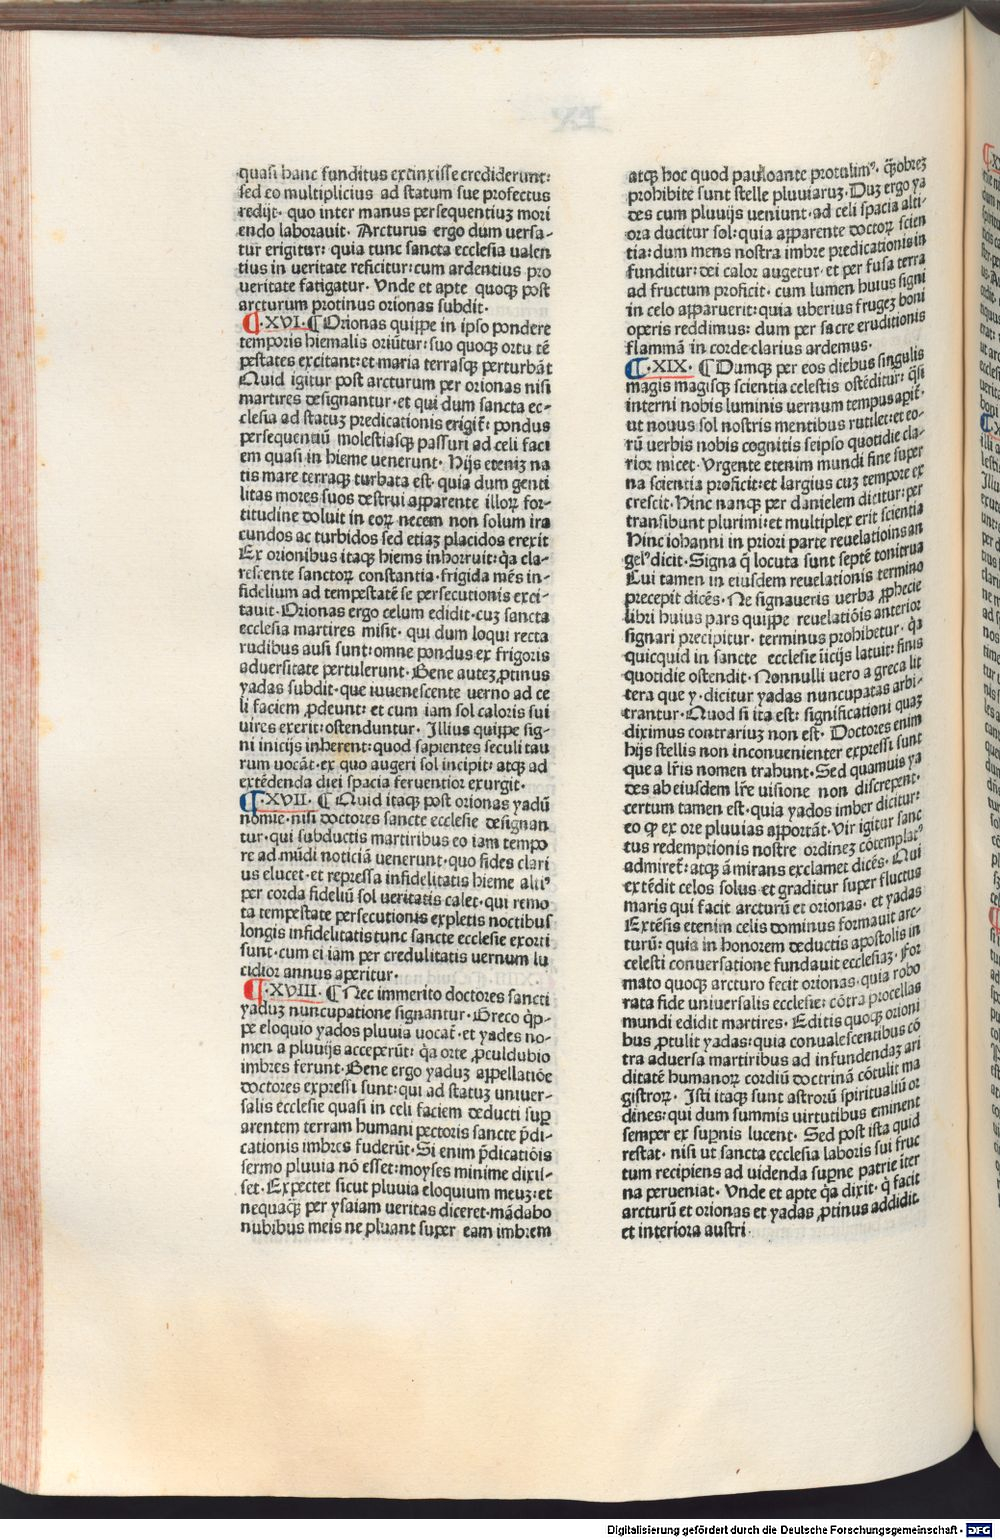 quasi hanc funditus extinxisse crediderunt:
sed eo multiplicius ad statum sue profectus
redijt· quo inter manus persequentiuꝫ mori
endo laborauit· Arcturus ergo dum uersa-
tur erigitur: quia tunc sancta ecclesia ualen
tius in ueritate reficitur: cum ardentius pro
ueritate fatigatur· Vnde et apte quoqꝫ post
arcturum protinus orionas subdit·
¶·XVI·¶ Orionas quippe in ipso pondere
temporis hiemalis oriūtur: suo quoqꝫ ortu tē
pestates excitant: et maria terrasqꝫ perturbāt
Quid igitur post arcturum per orionas nisi
martires designantur· et qui dum sancta ec-
clesia ad statuꝫ predicationis erigit᷑: pondus
persequentiū molestiasqꝫ passuri ad celi faci
em quasi in hieme uenerunt· Hijs eteniꝫ na
tis mare terraqꝫ turbata est· quia dum genti
litas mores suos destrui apparente illoꝝ for-
titudine doluit in eoꝝ necem non solum ira
cundos ac turbidos sed etiaꝫ placidos erexit
Ex orionibus itaqꝫ hiems inhorruit: q̇a cla-
rescente sanctoꝝ constantia· frigida mēs in-
fidelium ad tempestatē se persecutionis exci-
tauit· Orionas ergo celum edidit· cuꝫ sancta
ecclesia martires misit· qui dum loqui recta
rudibus ausi sunt: omne pondus ex frigoris
aduersitate pertulerunt· Bene auteꝫ ꝓtinus
yadas subdit· que iuuenescente uerno ad ce
li faciem ꝓdeunt: et cum iam sol caloris sui
uires exerit: ostenduntur· Illius quippe sig-
ni inicijs inherent: quod sapientes seculi tau
rum uocāt· ex quo augeri sol incipit: atqꝫ ad
extēdenda diei spacia feruentior exurgit·
¶·XVII·¶ Quid itaqꝫ post orionas yadū
nomie· nisi doctores sancte ecclesie designan
tur· qui subductis martiribus eo iam tempo
re ad mūdi noticiā uenerunt· quo fides clari
us elucet· et repressa infidelitatis hieme altiꝰ
per corda fideliū sol ueritatis calet· qui remo
ta tempestate persecutionis expletis noctibus
longis infidelitatis tunc sancte ecclesie exorti
sunt· cum ei iam per credulitatis uernum lu
cidior annus aperitur·
¶·XVIII·¶ Nec immerito doctores sancti
yaduꝫ nuncupatione signantur· Greco q̇p-
pe eloquio yados pluuia uocat᷑· et yades no-
men a pluuijs acceperūt: q̇a orte ꝓculdubio
imbres ferunt· Bene ergo yaduꝫ appellatiōe
doctores expressi sunt: qui ad statuꝫ uniuer-
salis ecclesie quasi in celi faciem deducti suꝑ
arentem terram humani pectoris sancte p̄di-
cationis imbres fuderūt· Si enim p̄dicatiōis
sermo pluuia nō esset: moyses minime dixis-
set· Expectet sicut pluuia eloquium meuꝫ: et
nequaq̄ꝫ per ysaiam ueritas diceret· mādabo
nubibus meis ne pluant super eam imbrem
atqꝫ hoc quod pauloante protulimꝰ· q̄ꝫobreꝫ
prohibite sunt stelle pluuiaruꝫ· Duꝫ ergo ya
des cum pluuijs ueniunt· ad celi spacia alti-
ora ducitur sol: quia apparente doctoꝝ scien
tia: dum mens nostra imbre predicationis in
funditur: dei calor augetur· et per fusa terra
ad fructum proficit· cum lumen huius signi
in celo apparuerit: quia uberius frugeꝫ boni
operis reddimus: dum per sacre eruditionis
flammā in corde clarius ardemus·
¶·XIX·¶ Dumqꝫ per eos diebus singulis
magis magisqꝫ scientia celestis ostēditur: q̄si
interni nobis luminis uernum tempus apit᷑·
ut nouus sol nostris mentibus rutilet: et eo-
rū uerbis nobis cognitis seipso quotidie cla-
rior micet· Vrgente etenim mundi fine super
na scientia proficit: et largius cuꝫ tempore ex
crescit· Hinc nanqꝫ per danielem dicitur: per
transibunt plurimi: et multiplex erit scientia
Hinc iohanni in priori parte reuelationis an
gelꝰ dicit· Signa q̄ locuta sunt septē tonitrua
Cui tamen in eiusdem reuelationis termino
precepit dicēs· Ne signaueris uerba ꝓphecie
libri huius pars quippe reuelatiōis anterior
signari precipitur· terminus prohibetur· q̇a
quicquid in sancte ecclesie īicijs latuit: finis
quotidie ostendit· Nonnulli uero a greca lit
tera que y· dicitur yadas nuncupatas arbi-
trantur· Quod si ita est: significationi quaꝫ
diximus contrariuꝫ non est· Doctores enim
hijs stellis non inconuenienter expressi sunt
que a lr̄is nomen trahunt· Sed quamuis ya
des ab eiusdem lr̄e uisione non discrepent·
certum tamen est· quia yados imber dicitur:
eo ꝙ ex ore pluuias apportāt· Vir igitur sanc
tus redemptionis nostre ordineꝫ cōtemplatꝰ
admiret᷑: atqꝫ āmirans exclamet dicēs· Qui
extēdit celos solus et graditur super fluctus
maris qui facit arcturū et orionas· et yadas
Extēsis etenim celis dominus formauit arc-
turū: quia in honorem deductis apostolis in
celesti conuersatione fundauit ecclesiaꝫ· For
mato quoqꝫ arcturo fecit orionas· quia robo
rata fide uniuersalis ecclesie: cōtra procellas
mundi edidit martires· Editis quoqꝫ orioni
bus ꝓtulit yadas: quia conualescentibus cō
tra aduersa martiribus ad infundendaꝫ ari
ditatē humanoꝝ cordiū doctrinā cōtulit ma
gistroꝝ· Isti itaqꝫ sunt astrorū spiritualiū or
dines: qui dum summis uirtutibus eminent
semper ex suꝑnis lucent· Sed post ista quid
restat· nisi ut sancta ecclesia laboris sui fruc
tum recipiens ad uidenda suꝑne patrie iter
na perueniat· Vnde et apte q̇a dixit· q̇ facit
arcturū et orionas et yadas ꝓtinus addidit·
et interiora austri·
Digitalisierung gefördert durch die Deutsche Forschungsgemeinschaft - DFG